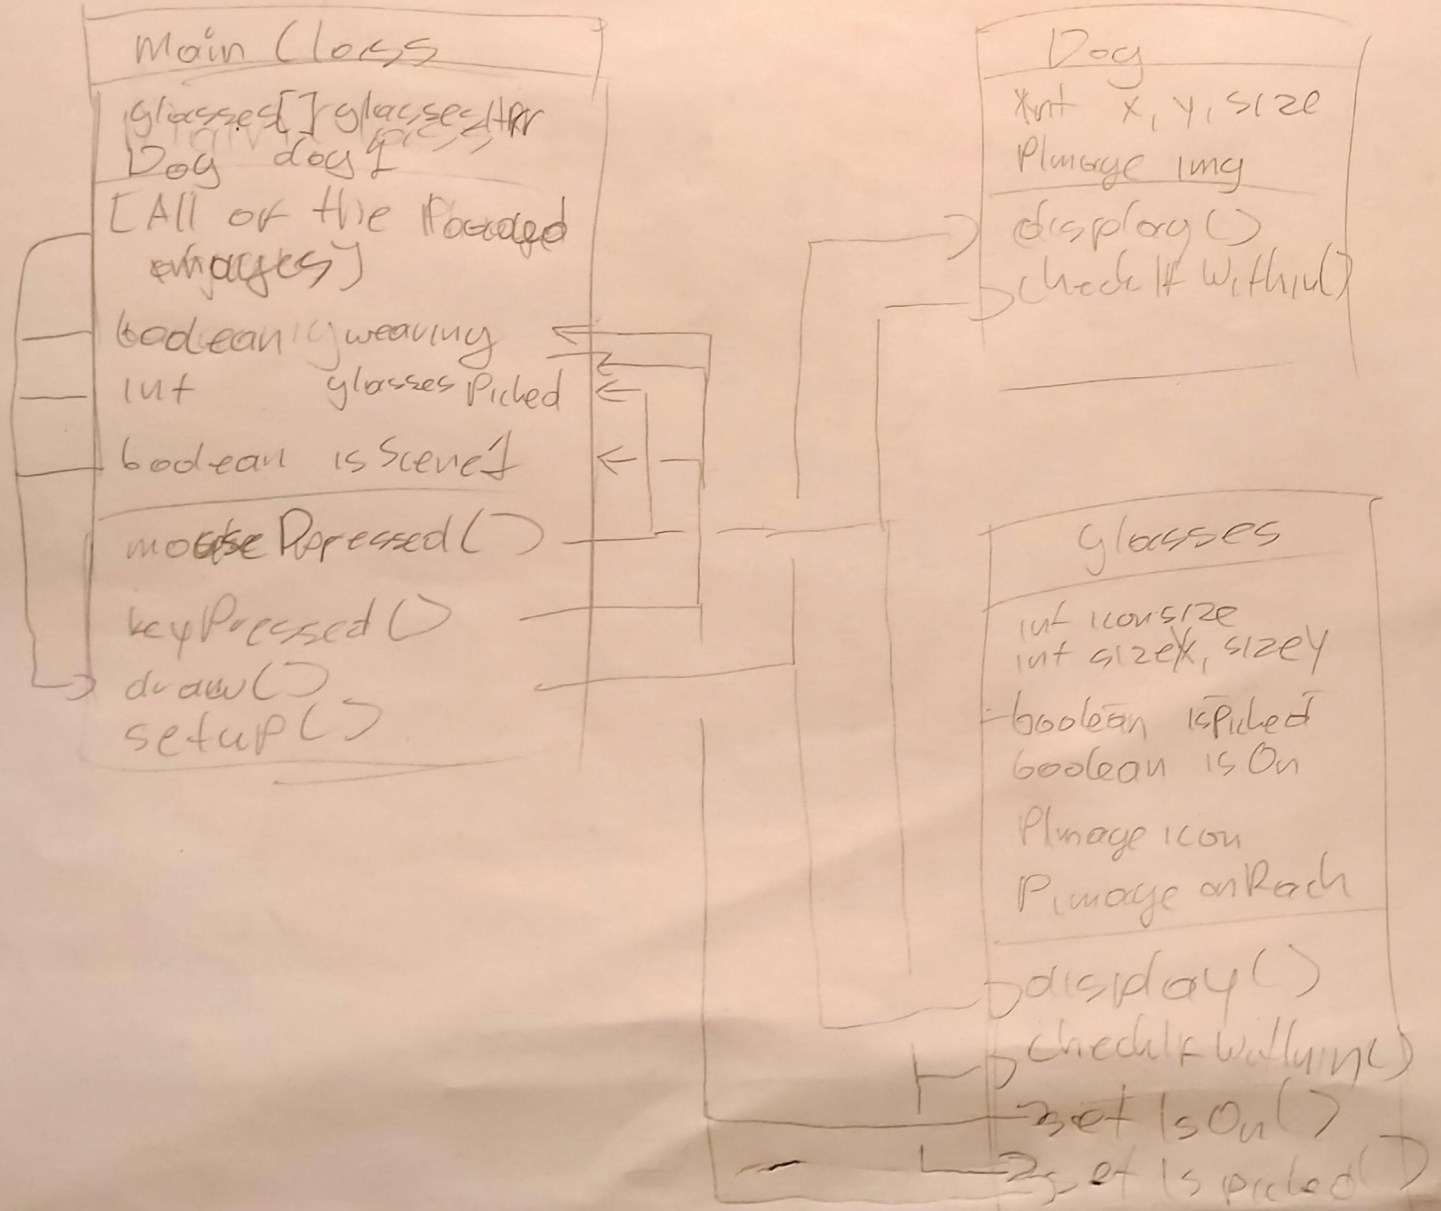 Main Class
glasses[] glasses
Dog dog1
[All of the
images]
boolean wearing
int glassesPicked
boolean isScene1
mousePressed()
keyPressed()
draw()
setup()
Dog
int x, y, size
PImage img
display()
checkIfWithin()
glasses
int iconsize
int sizeX, sizeY
boolean isPicked
boolean isOn
PImage icon
PImage onRach
display()
checkIfWithin()
set IsOn()
set Is picked()